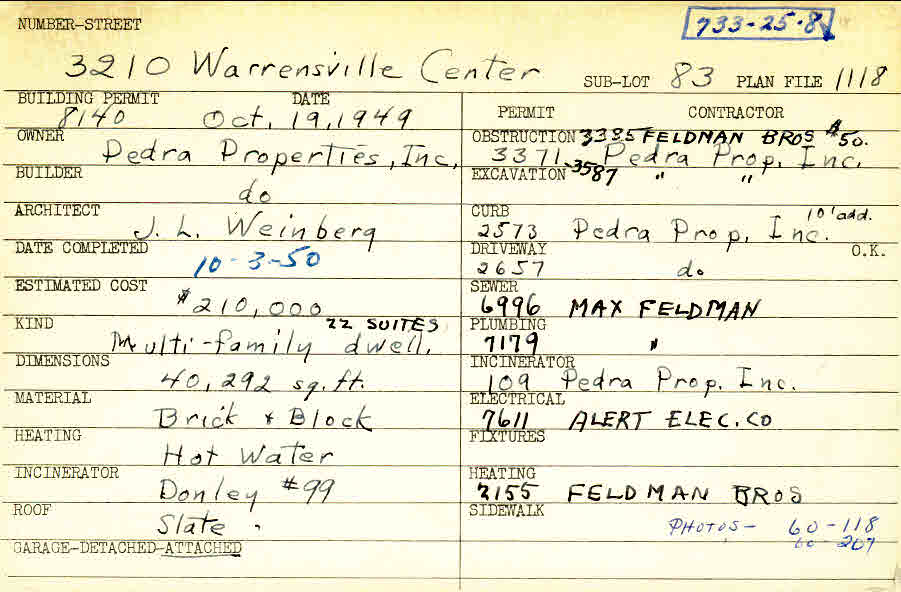 NUMBER-STREET
733-25-8
3210 Warrensville Center
SUB-LOT 83 PLAN FILE 1118
BUILDING PERMIT DATE
8140 Oct. 19, 1949
OWNER
Pedra Properties, Inc.
BUILDER
do
ARCHITECT
J. L. Weinberg
DATE COMPLETED
10-3-50
ESTIMATED COST
$210,000
KIND 22 SUITES
Multi-family dwell.
DIMENSIONS
40,292 sq. ft.
MATERIAL
Brick & Block
HEATING
Hot Water
INCINERATOR
Donley #99
ROOF
Slate
GARAGE-DETACHED-ATTACHED
PERMIT CONTRACTOR
OBSTRUCTION 3385 FELDMAN BROS $50.
3371 Pedra Prop. Inc.
EXCAVATION 3587 " "
CURB 10' add.
2573 Pedra Prop. Inc.
DRIVEWAY O.K.
2657 do
SEWER
6996 MAX FELDMAN
PLUMBING
7179 "
INCINERATOR
109 Pedra Prop. Inc.
ELECTRICAL
7611 ALERT ELEC. CO
FIXTURES
HEATING
2155 FELDMAN BROS
SIDEWALK
PHOTOS- 60-118
60-207